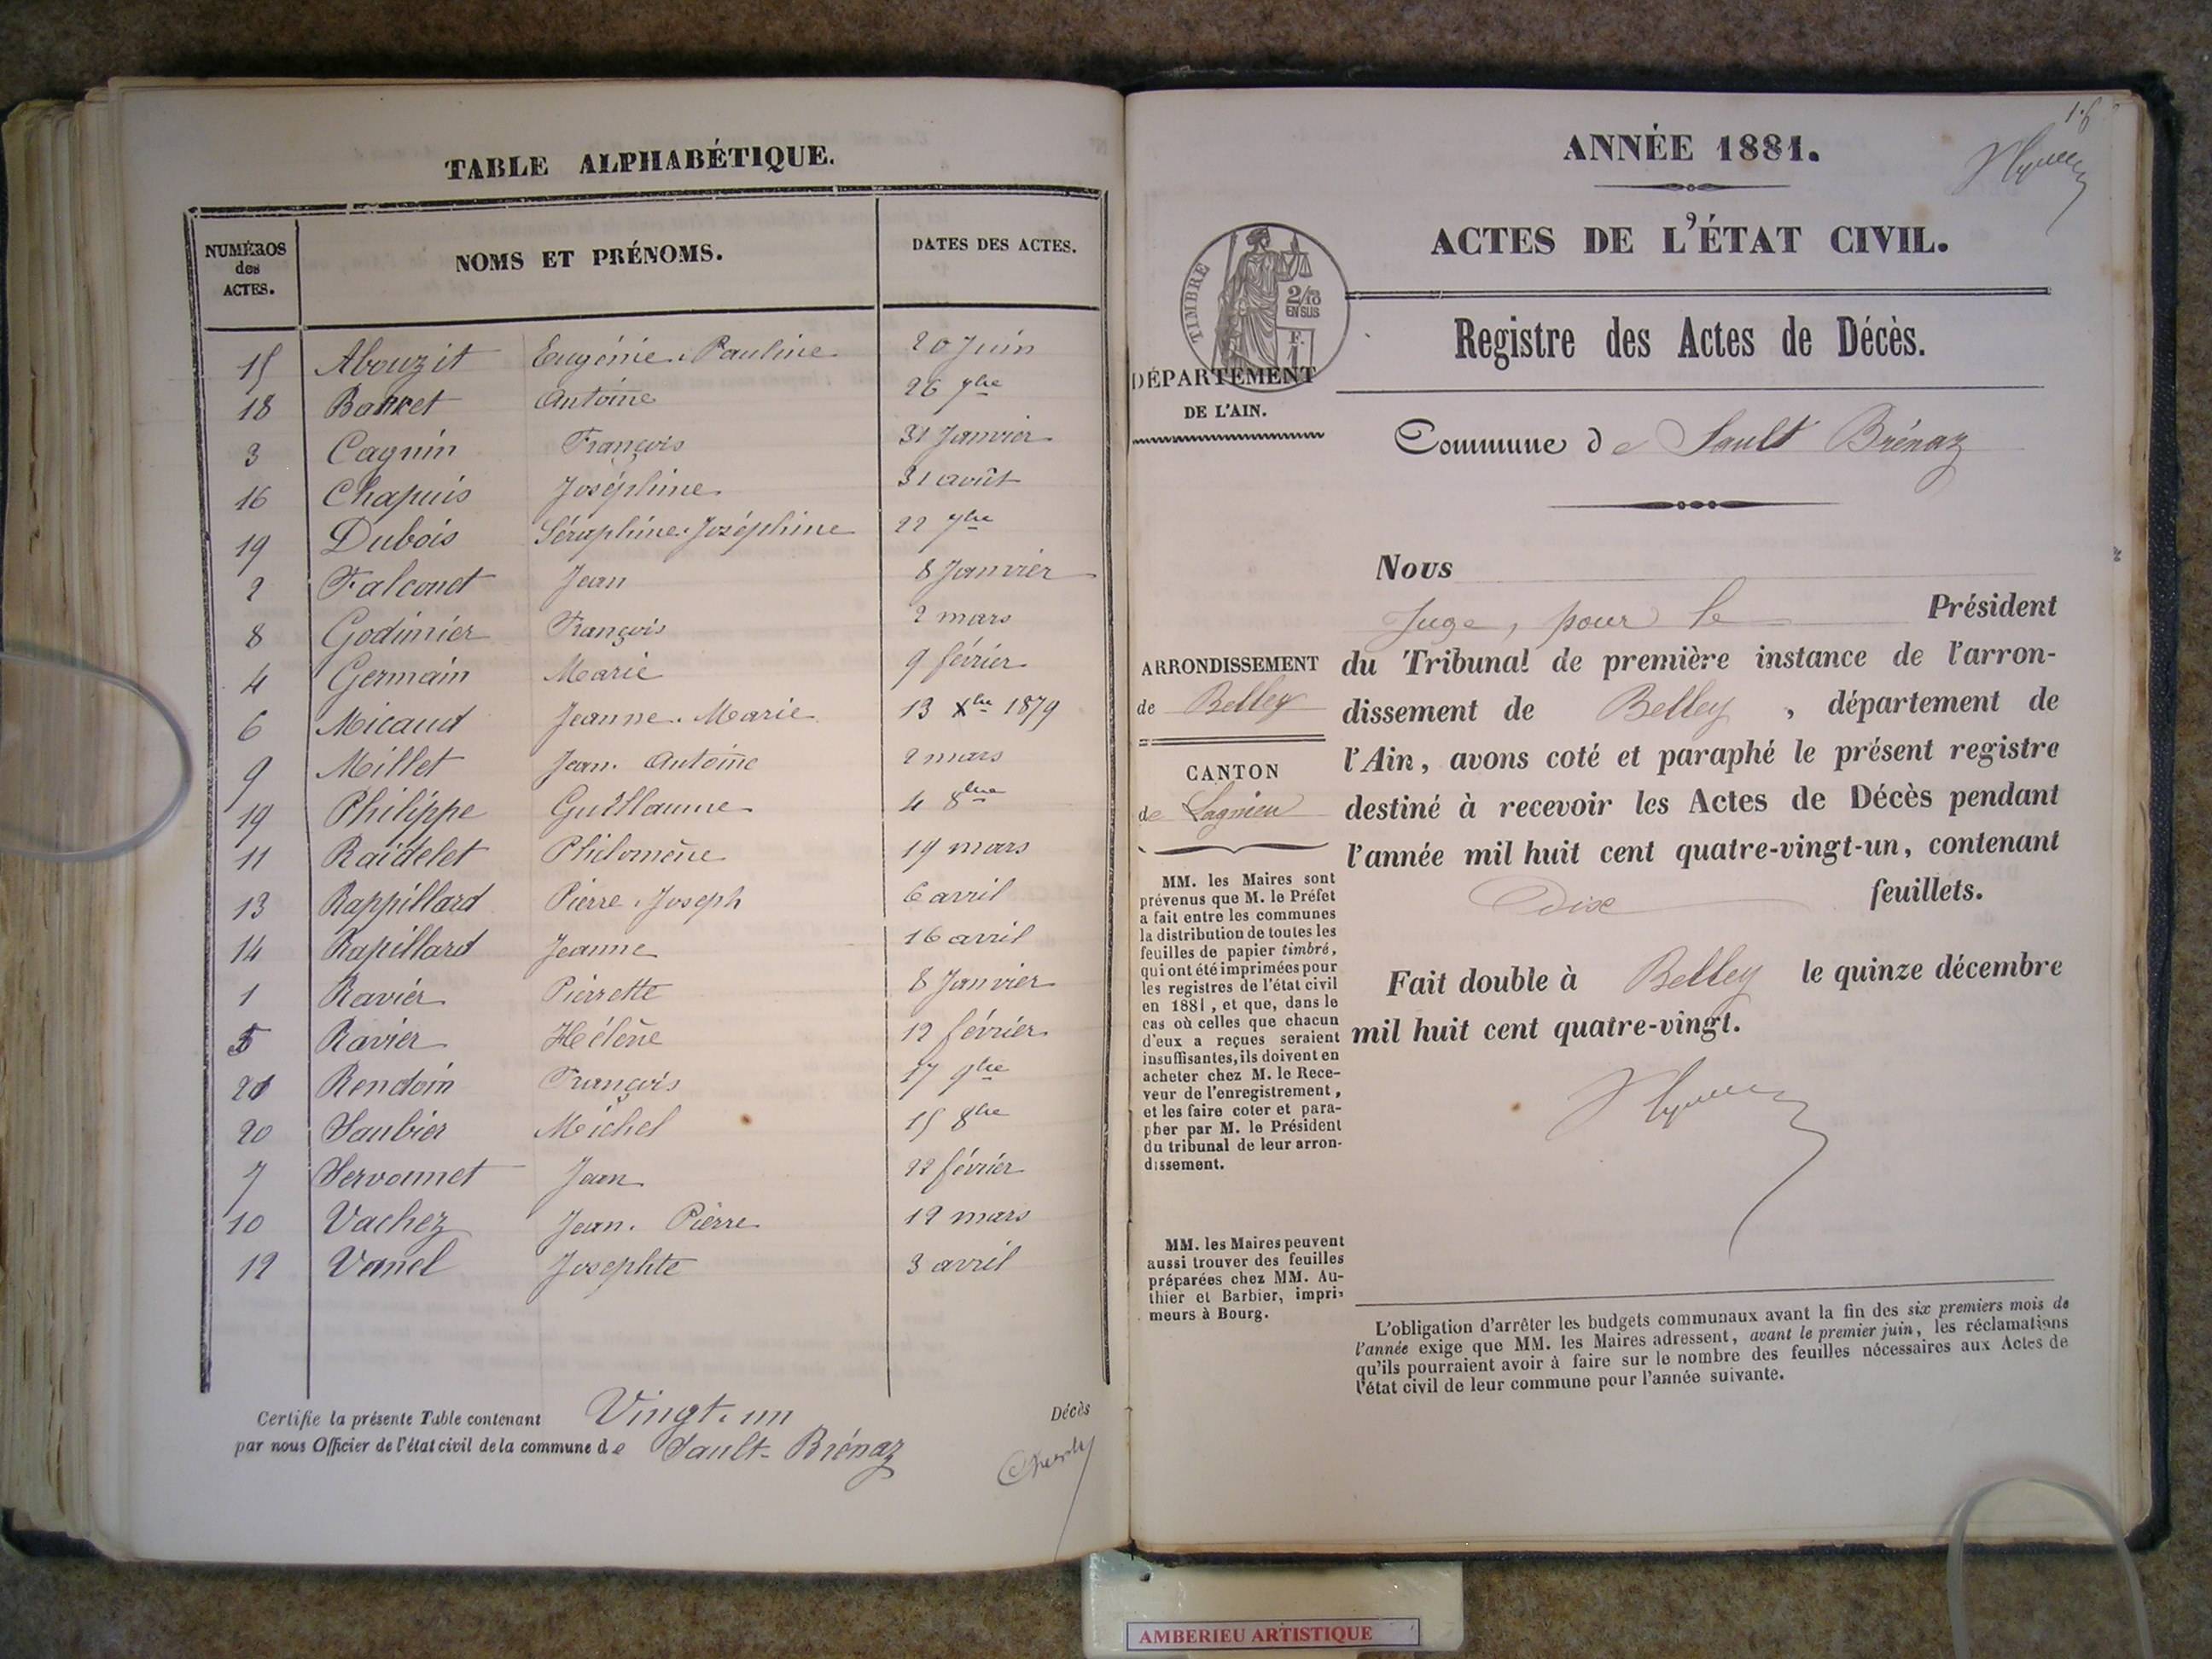 TABLE ALPHABÉTIQUE.
NUMÉROS des ACTES. NOMS ET PRÉNOMS. DATES DES ACTES.
15 Abouzit Eugénie. Pauline 20 Juin
18 Barret Antoine 26 7bre
3 Cagnin François 31 Janvier
16 Chapuis Joséphine 31 août
19 Dubois Séraphine. Joséphine 22 7bre
2 Falconet Jean 8 Janvier
8 Godinier François 2 mars
4 Germain Marie 9 février
6 Micaud Jeanne. Marie 13 Xbre 1879
9 Millet Jean. Antoine 2 mars
19 Philippe Guillaume 4 8bre
11 Raidelet Philomène 19 mars
13 Rappillard Pierre. Joseph 6 avril
14 Rapillard Jeanne 16 avril
1 Ravier Pierrette 8 Janvier
5 Ravier Hélène 12 février
21 Rendoin François 17 9bre
20 Saubier Michel 15 8bre
7 Servonnet Jean 22 février
10 Vachez Jean. Pierre 12 mars
12 Vanel Josephte 3 avril
Certifie la présente Table contenant Vingt. un Décès
par nous Officier de l'état civil de la commune de Sault-Brénaz
ANNÉE 1881.
ACTES DE L'ÉTAT CIVIL.
TIMBRE
2/10
EN SUS
F.
1
DÉPARTEMENT
DE L'AIN.
Registre des Actes de Décès.
Commune de Sault Brénaz
ARRONDISSEMENT
de Belley
CANTON
de Lagnieu
MM. les Maires sont
prévenus que M. le Préfet
a fait entre les communes
la distribution de toutes les
feuilles de papier timbré,
qui ont été imprimées pour
les registres de l'état civil
en 1881, et que, dans le
cas où celles que chacun
d'eux a reçues seraient
insuffisantes, ils doivent en
acheter chez M. le Rece-
veur de l'enregistrement,
et les faire coter et para-
pher par M. le Président
du tribunal de leur arron-
dissement.
MM. les Maires peuvent
aussi trouver des feuilles
préparées chez MM. Au-
thier et Barbier, impri-
meurs à Bourg.
Nous
Juge, pour le Président
du Tribunal de première instance de l'arron-
dissement de Belley, département de
l'Ain, avons coté et paraphé le présent registre
destiné à recevoir les Actes de Décès pendant
l'année mil huit cent quatre-vingt-un, contenant
Dix feuillets.
Fait double à Belley le quinze décembre
mil huit cent quatre-vingt.
L'obligation d'arrêter les budgets communaux avant la fin des six premiers mois de
l'année exige que MM. les Maires adressent, avant le premier juin, les réclamations
qu'ils pourraient avoir à faire sur le nombre des feuilles nécessaires aux Actes de
l'état civil de leur commune pour l'année suivante.
AMBERIEU ARTISTIQUE